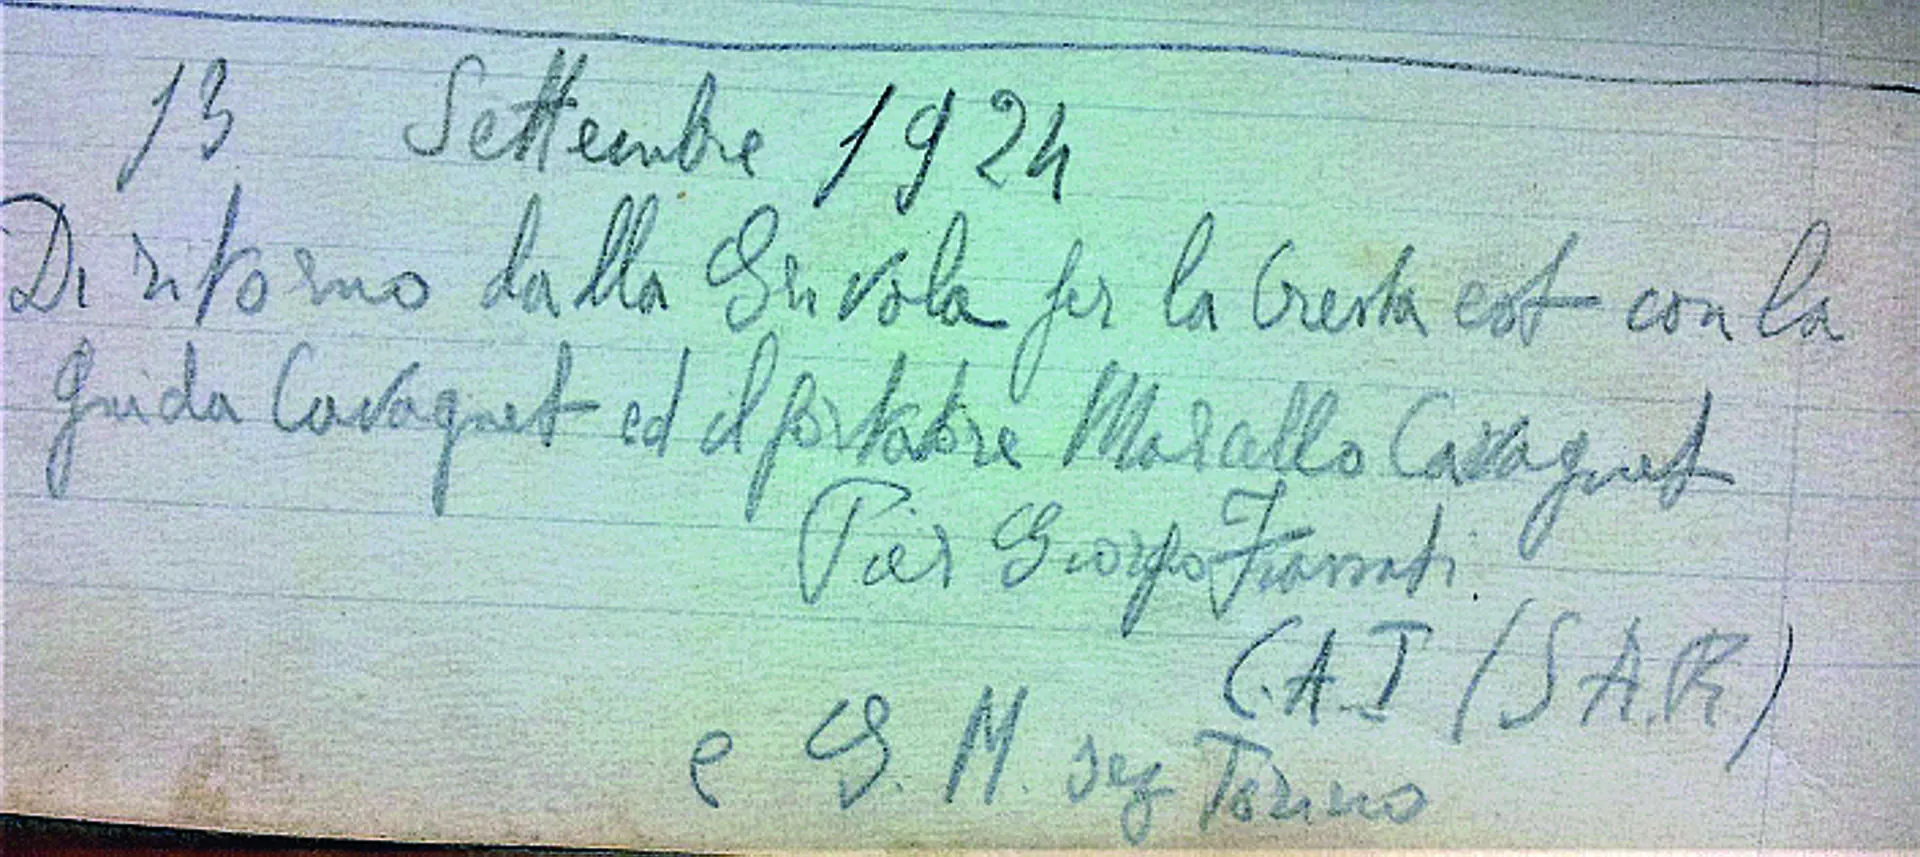 13 Settembre 1924
Di ritorno dalla Grivola per la Cresta est con la
guida Cavagnet ed il portatore Marcello Cavagnet
Pier Giorgio Frassati
C.A.I (S.A.R.)
e G. M. sez Torino